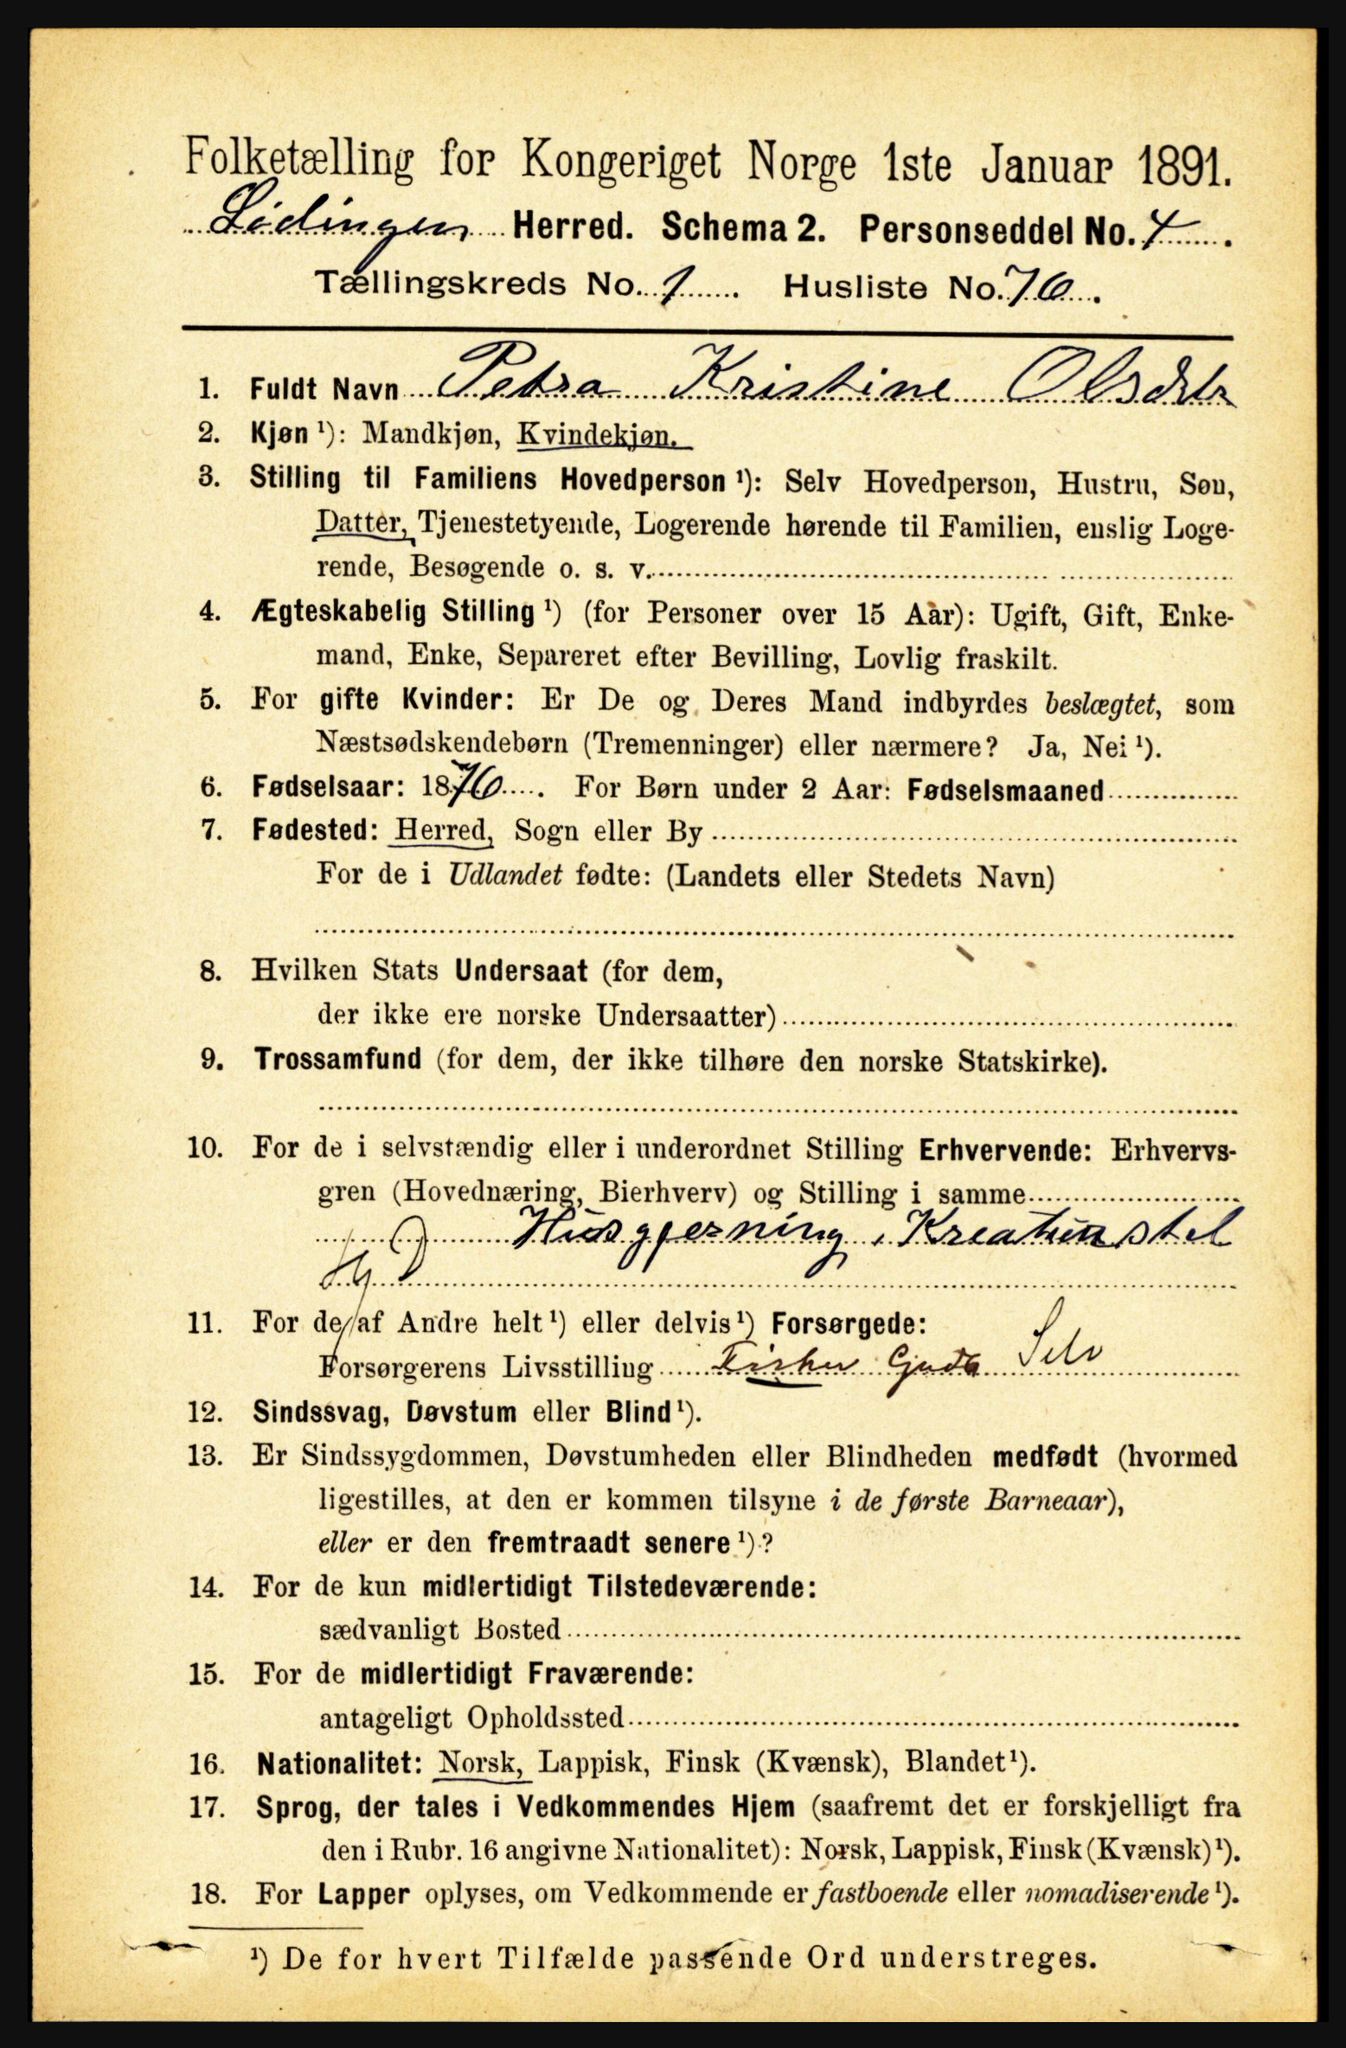 Folketælling for Kongeriget Norge 1ste Januar 1891.
Lødingen Herred. Schema 2. Personseddel No. 4
Tællingskreds No. 1 Husliste No. 76.
1. Fuldt Navn Petra Kristine Olsdtr
2. Kjøn ¹): Mandkjøn, Kvindekjøn.
3. Stilling til Familiens Hovedperson ¹): Selv Hovedperson, Hustru, Søn,
Datter, Tjenestetyende, Logerende hørende til Familien, enslig Loge-
rende, Besøgende o. s. v.
4. Ægteskabelig Stilling ¹) (for Personer over 15 Aar): Ugift, Gift, Enke-
mand, Enke, Separeret efter Bevilling, Lovlig fraskilt.
5. For gifte Kvinder: Er De og Deres Mand indbyrdes beslægtet, som
Næstsødskendebørn (Tremenninger) eller nærmere? Ja, Nei ¹).
6. Fødselsaar: 1876. For Børn under 2 Aar: Fødselsmaaned
7. Fødested: Herred, Sogn eller By
For de i Udlandet fødte: (Landets eller Stedets Navn)
8. Hvilken Stats Undersaat (for dem,
der ikke ere norske Undersaatter)
9. Trossamfund (for dem, der ikke tilhøre den norske Statskirke).
10. For de i selvstændig eller i underordnet Stilling Erhvervende: Erhvervs-
gren (Hovednæring, Bierhverv) og Stilling i samme
Husgjerning, Kreaturstel
11. For de af Andre helt ¹) eller delvis ¹) Forsørgede:
Forsørgerens Livsstilling Fisker Gaardb Selv
12. Sindssvag, Døvstum eller Blind ¹).
13. Er Sindssygdommen, Døvstumheden eller Blindheden medfødt (hvormed
ligestilles, at den er kommen tilsyne i de første Barneaar),
eller er den fremtraadt senere ¹)?
14. For de kun midlertidigt Tilstedeværende:
sædvanligt Bosted
15. For de midlertidigt Fraværende:
antageligt Opholdssted
16. Nationalitet: Norsk, Lappisk, Finsk (Kvænsk), Blandet ¹).
17. Sprog, der tales i Vedkommendes Hjem (saafremt det er forskjelligt fra
den i Rubr. 16 angivne Nationalitet): Norsk, Lappisk, Finsk (Kvænsk) ¹).
18. For Lapper oplyses, om Vedkommende er fastboende eller nomadiserende ¹).
¹) De for hvert Tilfælde passende Ord understreges.